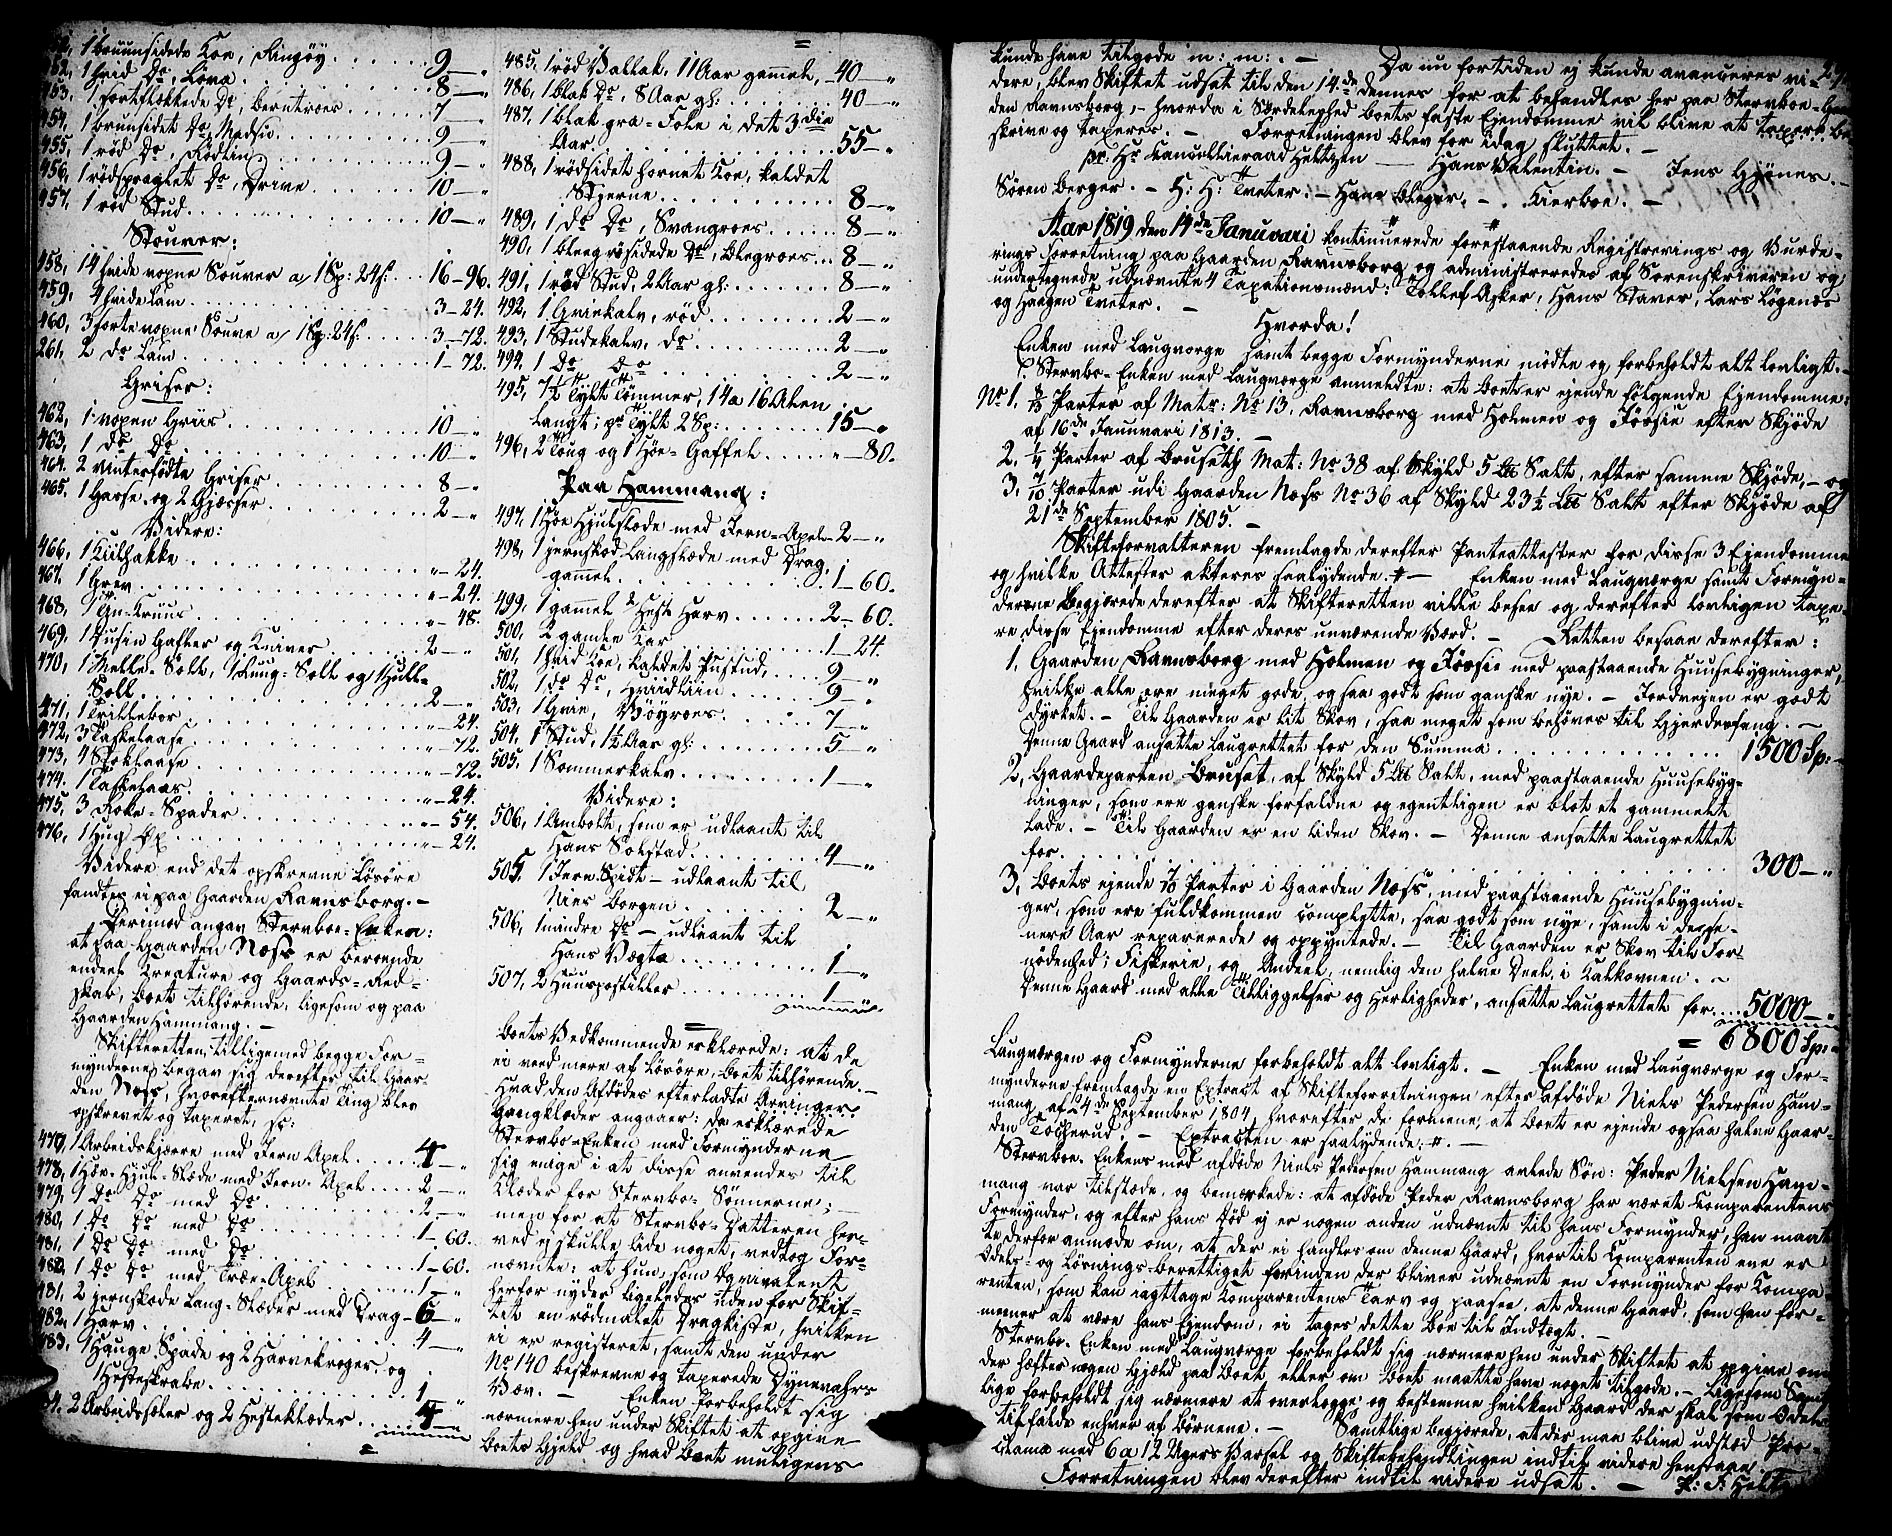 1 bruunsidede Koe, Ringøy . . . . . . 9 — „
452, 1 hvid Do, Löva . . . . . . 8 — „
453, 1 sortflekkede Do, Berntroes . . . . 7 — „
454, 1 brunsidet Do, Madsie . . . . . 9 — „
455, 1 rød Do, Rødlin . . . . . . 9 — „
456, 1 rødspraglet Do, Drive . . . . . 10 — „
457, 1 rød Stud . . . . . . 10 — „
Souver:
458, 14 hvide vopne Souver a/ 1 Sp: 24 s. . . . 16 — 96.
459, 4 hvide Lam . . . . . . 3 — 24.
460, 3 sorte vopne Souve a/ 1 Sp: 24 s: . . . . 3 — 72.
261, 2 do Lam . . . . . . 1 — 72.
Griser:
462, 1 vopen Griis . . . . . . 10 — „
463, 1 do Do . . . . . . 10 — „
464, 2 vinterfødte Griser . . . . . 8 — „
465, 1 Gasse og 2 Giæsser . . . . . 2 — „
Videre:
466, 1 Kulhakke . . . . . . „ — 24.
467, 1 Grev . . . . . . „ — 24.
468, 1 Øl-Kruus . . . . . . „ — 48.
469, 1 Dusin Gafler og Kniver . . . . 2 — „
470, 1 Melle-Sold, 1 Rug-Sold og 1 Hull-
Soll . . . . . . 2 — „
471, 1 Trillebør . . . . . . „ — 24.
472, 3 Taskelaase . . . . . . „ — 72.
473, 4 Stoklaase . . . . . . „ — 72.
474, 1 Taskelaas . . . . . . „ — 24.
475, 3 Roke-Spader . . . . . . „ — 54.
476, 1 Hug Øx . . . . . . „ — 24.
Videre end det opskrevne Løsøre
fandtes ei paa Gaarden Ravnsborg. —
Derimod angav Stervboe-Enken:
at paa Gaarden Næss er beroende
endeel Creature og Gaards-Red-
skab, Boet tilhørende, ligesom og paa
Gaarden Hammang. —
Skifteretten tilligemed begge For-
mynderne begav sig derefter til Gaar-
den Næss, hvorefternævnte Ting blev
opskrevet og taxeret, sc:
477, 1 Arbeidskjærre med Jern Axel . . . . 4 — „
478, 1 Høe-Hjul-Slæde med Jern-Axel . . . . 2 — „
479, 1 Do Do med Do . . . . . 2 — „
480, 1 Do Do med Do . . . . . 1 — 60.
481, 1 Do Do med Do . . . . . 1 — 60.
482, 1 Do Do med Træe-Axel . . . . . 1 — „
481, 2 jernskoede Lang-Slæder med Drag — 6 — „
482, 1 Harv . . . . . . 4 — „
483, 1 Hauge Spade og 2 Harvekroger, og
1 Hesteskrabe . . . . . . 1 „
84. 2 Arbeidsseler og 2 Hesteklæder . . . 4 — „
485, 1 rød Vallak, 11 Aar gammel, — 40 — „
486, 1 blak Do, 8 Aar gl: . . . . . 40 — „
487, 1 blak graa-Fole i det 3die
Aar . . . . . . 55 — „
488, 1 rødsidet hornet Koe, kaldet
Stjerne . . . . . . 8 — „
489, 1 Do Do, Svangroes . . . . . 8 — „
490, 1 bleegrøsidede Do, Blegroes . . 8 — „
491, 1 rød Stud, 2 Aar gl: . . . . . 8 — „
492, 1 Qviekalv, rød . . . . . 2 — „
493, 1 Studekalv, do . . . . . 2 — „
494, 1 Do Do . . . . . 2 — „
495, 7½ Tylt Tømmer, 14 a 16 Alen
langt; pr Tylt 2 Sp: . . . . . 15 — „
496, 2 Toug og 1 Høe-Gaffel . . . . „ — 80.
Paa Hammang:
497, 1 Høe Hjulslæde med Jern-Axel — 2 — „
498, 1 jernskoed Langslæde med Drag,
gammel . . . . . . 1 — 60.
499, 1 gammel Heste Harv . . . . . 2 — 60.
500, 2 gamle Kar . . . . . 1 — 24.
501, 1 hvid Koe, kaldet Pustud, . . . 9 — „
502, 1 do Do, Hviidliin . . . . . 9 „
503, 1 Qvie, Vøyroes . . . . . 7 — „
504, 1 Stud, 1½ Aar gl: . . . . . 5 — „
505, 1 Sommerkalv . . . . . 1 — „
Videre:
506, 1 Ambolt, som er udlaant til
Hans Solstad . . . . . 4 — „
505, 1 Jern Spidt — udlaant til
Niels Borgen . . . . . 2 — „
506, 1 mindre Do — udlaant til
Hans Vægte . . . . . 1 — „
507, 2 Huuspostiller . . . . . 1 — „
Boets Vedkommende erklærede: at de
ei veed mere af Løsøre, Boet tilhørende. —
Hvad den Afdødes efterladte Arvinger
Gangklæder angaaer: da erklærede
Stervbo-Enken med Formynderne
sig enige i at disse anvendes til
Klæder for Stervbo-Sønnerne; —
men for at Stervbo-Datteren her-
ved ej skulle lide noget, vedtog For-
nævnte: at hun, som Æqvivalent
herfor nyder ligeledes uden for Skif-
tet en rødmalet Dragkiste, hvilken
ei er registeret, samt den under
No 140 beskrevne og taxerede Dynevahrs
Væv. — Enken Forbeholdt sig
nærmere hen under Skiftet at opgive
Boets Gjeld og hvad Boet muligens
kunde have tilgode m: m: . — Da nu fortiden ej kunde avancerer vi-
dere, blev Skiftet udsat til den 14de dennes for at behandles her paa Stervboe-Gaar-
den Ravnsborg, — hvorda i Særdeleshed Boets faste Ejendomme vil blive at taxere, be-
skrive og taxerer. — Forretningen blev for idag sluttet. —
pr: Hr Cancellieraad Heltzen — Hans Valentin. — Jens Gjønes. —
Søren Berger. — H: H: Tveter. — Hans Bleger. — Kierboe. —
Aar 1819 den 14de Januvari kontinuerede forestaaende Registrerings og Vurde-
rings Forretning paa Gaarden Ravnsborg og administreredes af Sorenskriveren og
undertegnede udnævnte 4 Taxationsmænd: Tollef Asker, Hans Staver, Lars Løgenæs
og Haagen Tveter. —
Hvorda!
Enken med Laugværge samt begge Formynderne mødte og forbeholdt alt Lovligt. —
Stervbo-Enken med Laugværge anmeldte: at Boet er ejende følgende Ejendomme:
No 1. Parter af Matr: No 13, Ravnsborg med Holmen og Jøssie efter Skjøde
af 16de Januvari 1813. —
2. ¼ Parter af Bruseth Mat: No 38 af Skyld 5 L℔ Salt, efter samme Skjøde, — og
3, 7/10 Parter udi Gaarden Næss No 36 af Skyld 23½ L℔ Salt efter Skjøde af
21de September 1805. —
Skifteforvalteren fremlagde derefter Panteattester for disse 3 Ejendomme
og hvilke Attester akteres saalydende # — Enken med Laugværge samt Formyn-
derne begjærede derefter at Skifteretten vilde besee og derefter lovligen taxe-
re disse Ejendomme efter deres unværende Værd. — Retten besaae derefter:
1. Gaarden Ravnsborg med Holmen og Jøssie med paastaaende Huusebygninger,
hvilke alle ere meget gode, og saa godt som ganske nye. — Jordvejen er godt
dyrket. — Til Gaarden er lit Skov, saa meget som behøves til Gjerdesfang. —
Denne Gaard ansatte Laugrettet for den Summa . . . . . . 1500 Sp: —
2, Gaardeparten Bruset, af Skyld 5 L℔ Salt, med paastaaende Huusebyg-
ninger, som ere ganske forfaldne og egentligen er blot et gammelt
Lade. — Til Gaarden er en liden Skov. — Denne ansatte Laugrettet
for . . . . . . 300 — „
3, Boets ejende 7/10 Parter i Gaarden Næss, med paastaaende Huusebygnin-
ger, som ere fuldkommen complette, saa godt som nye, samt i desse-
nere Aar reparerede og oppyntede. — Til Gaarden er Skov til For-
nødenhed; Fiskerie, og Andeel, nemlig den halve Deel, i Kalkovnen. —
Denne Gaard med alle Tilliggelser og Herligheder, ansatte Laugrettet for . . . 5000 — „
= 6800 Sp: —
Laugværgen og Formynderne forbeholdt alt lovligt. — Enken med Laugværge og For-
mynderne fremlagde en Extract af Skifteforretningen efter afdøde Niels Pedersen Ham-
mang af 24de September 1804, hvorefter de formene, at Boet er ejende ogsaa halve Gaar-
den Tokerud. — Extracten er saalydende: #. —
Stervboe-Enkens med afdøde Niels Pedersen Hammang avlede Søn: Peder Nielsen Ham-
mang var tilstæde, og bemærkede: at afdøde Peder Ravnsborg har været Comparentens
Formynder, og efter hans Død ej er nogen anden udnævnt til hans Formynder, han maat-
te derfor anmode om, at der ei handles om denne Gaard, hvortil Comparenten ene er
Odels- og Løsnings-berettiget forinden der bliver udnævnt en Formynder for Kompa-
renten, som kan iagttage Comparentens Tarv og paasee, at denne Gaard, som han for-
meener at være hans Ejendom, ei tages dette Boe til Indtægt. —
Stervbo-Enken med Laugværge forbeholdt sig nærmere hen under Skiftet at opgive om
der hæfter nogen Gjæld paa Boet, eller om Boet maatte have noget tilgode. — Ligesom
lige forbeholdt sig nærmere at overlægge og bestemme hvilken Gaard der skal som Odel
tilfalde enhver af Børnene. — Samtlige begjærede, at der maa blive udstæd Pro-
clama med 6 a 12 Ugers Varsel og Skiftebehandlingen indtil videre henstaae.
Forretningen blev derefter indtil videre udsat. —